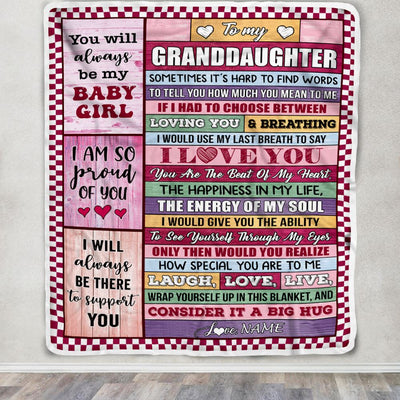 You will
always
be my
BABY
GIRL
I AM SO
proud
OF YOU
I WILL
always
BE THERE
to support
YOU
To my
GRANDDAUGHTER
SOMETIMES IT'S HARD TO FIND WORDS
TO TELL YOU HOW MUCH YOU MEAN TO ME
IF I HAD TO CHOOSE BETWEEN
LOVING YOU & BREATHING
I WOULD USE MY LAST BREATH TO SAY
I LOVE YOU
You Are The Beat Of My Heart,
THE HAPPINESS IN MY LIFE,
THE ENERGY OF MY SOUL
I WOULD GIVE YOU THE ABILITY
To See Yourself Through My Eyes
ONLY THEN WOULD YOU REALIZE
HOW SPECIAL YOU ARE TO ME
LAUGH, LOVE, LIVE,
WRAP YOURSELF UP IN THIS BLANKET, AND
CONSIDER IT A BIG HUG
Love, NAME